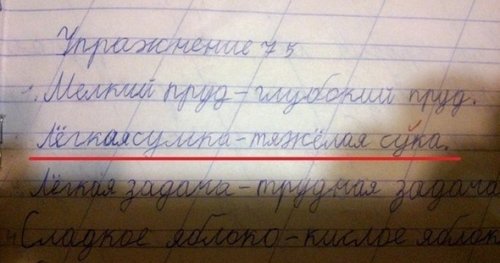 Упражнение 75
1. Мелкий пруд - глубокий пруд.
Лёгкаясумка - тяжёлая сука.
Лёгкая задача - трудная задача
Сладкое яблоко - кислое яблок